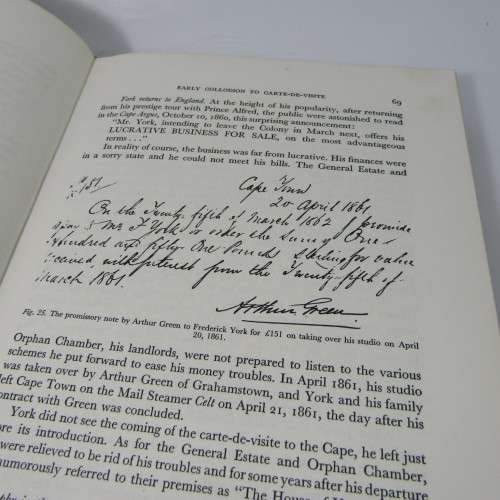 EARLY COLLODION TO CARTE-DE-VISITE 69
York returns to England. At the height of his popularity, after returning
from his prestige tour with Prince Alfred, the public were astonished to read
in the Cape Argus, October 10, 1860, this surprising announcement:
"Mr. York, intending to leave the Colony in March next, offers his
LUCRATIVE BUSINESS FOR SALE, on the most advantageous
terms . . ."
In reality of course, the business was far from lucrative. His finances were
in a sorry state and he could not meet his bills. The General Estate and
Cape Town
£151 20 April 1861
On the Twenty fifth of March 1862 I promise
to pay Mr F York or order the Sum of One
Hundred and fifty One Pounds Sterling for value
received, with interest from the Twenty-fifth of
March 1861.
Arthur Green
Fig. 25. The promissory note by Arthur Green to Frederick York for £151 on taking over his studio on April
20, 1861.
Orphan Chamber, his landlords, were not prepared to listen to the various
schemes he put forward to ease his money troubles. In April 1861, his studio
was taken over by Arthur Green of Grahamstown, and York and his family
left Cape Town on the Mail Steamer Celt on April 21, 1861, the day after his
contract with Green was concluded.
York did not see the coming of the carte-de-visite to the Cape, he left just
ore its introduction. As for the General Estate and Orphan Chamber,
were relieved to be rid of his troubles and for some years after his departure
umorously referred to their premises as "The House of